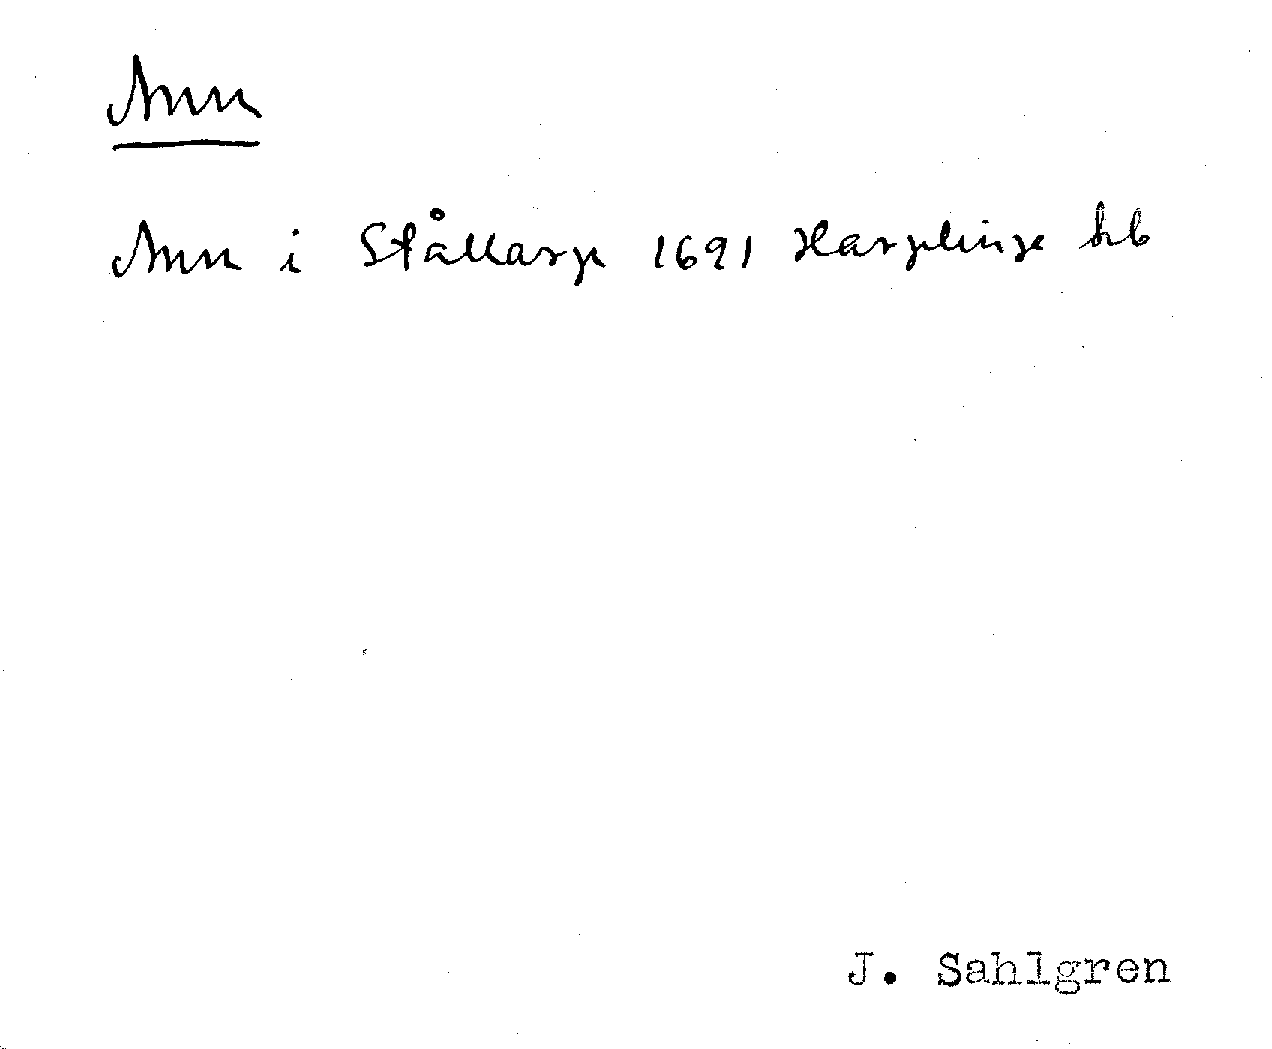 Ann
Ann i Stållarp 1691 Harplinge kb
J. Sahlgren